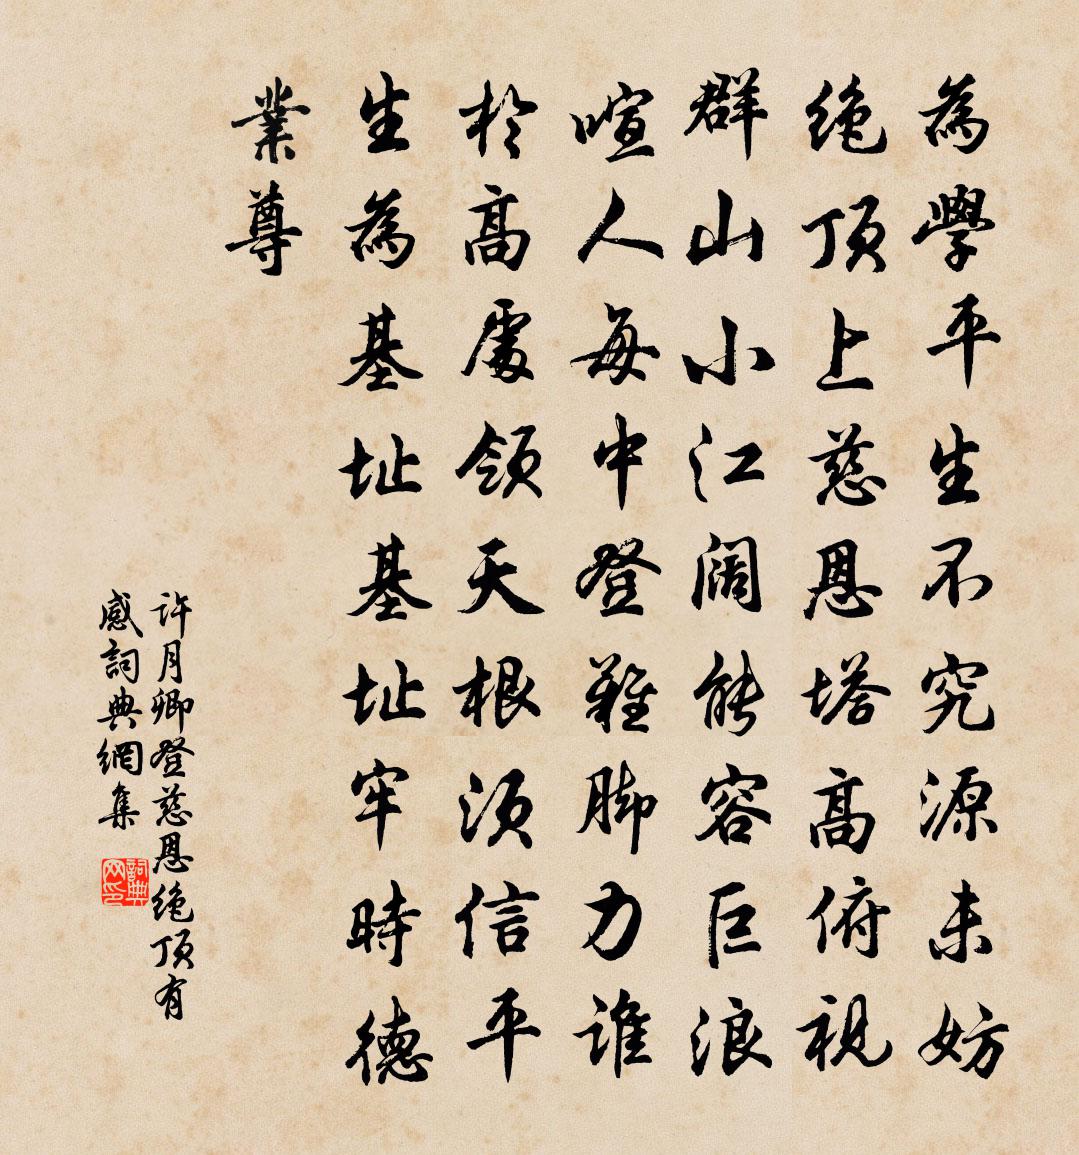 為學平生不究源未妨
絕頂上慈恩塔高俯視
群山小江闊能容巨浪
喧人每中登難脚力誰
於高處領天根須信平
生為基址基址牢時德
業尊
許月卿登慈恩絕頂有
感詞典網集
詞典
网印